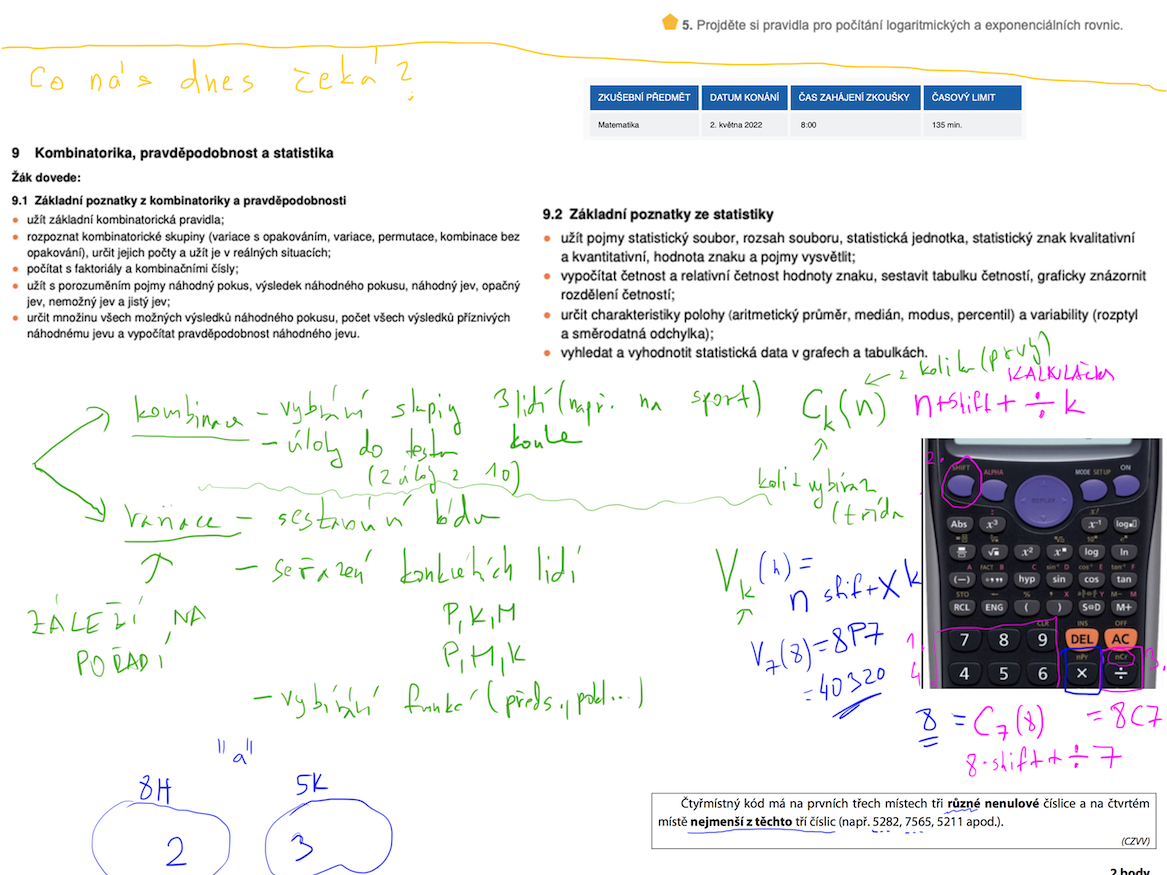 5. Projděte si pravidla pro počítání logaritmických a exponenciálních rovnic.
Co nás dnes čeká?
ZKUŠEBNÍ PŘEDMĚT DATUM KONÁNÍ ČAS ZAHÁJENÍ ZKOUŠKY ČASOVÝ LIMIT
Matematika 2. května 2022 8:00 135 min.
9 Kombinatorika, pravděpodobnost a statistika
Žák dovede:
9.1 Základní poznatky z kombinatoriky a pravděpodobnosti
• užít základní kombinatorická pravidla;
• rozpoznat kombinatorické skupiny (variace s opakováním, variace, permutace, kombinace bez
opakování), určit jejich počty a užít je v reálných situacích;
• počítat s faktoriály a kombinačními čísly;
• užít s porozuměním pojmy náhodný pokus, výsledek náhodného pokusu, náhodný jev, opačný
jev, nemožný jev a jistý jev;
• určit množinu všech možných výsledků náhodného pokusu, počet všech výsledků příznivých
náhodnému jevu a vypočítat pravděpodobnost náhodného jevu.
9.2 Základní poznatky ze statistiky
• užít pojmy statistický soubor, rozsah souboru, statistická jednotka, statistický znak kvalitativní
a kvantitativní, hodnota znaku a pojmy vysvětlit;
• vypočítat četnost a relativní četnost hodnoty znaku, sestavit tabulku četností, graficky znázornit
rozdělení četností;
• určit charakteristiky polohy (aritmetický průměr, medián, modus, percentil) a variability (rozptyl
a směrodatná odchylka);
• vyhledat a vyhodnotit statistická data v grafech a tabulkách.
kombinace - vybírání skupiny 3 lidí (např. na sport)
- úlohy do testu
(2 úlohy z 10)
variace - sestavování kódu
- seřazení konkrétních lidí
ZÁLEŽÍ NA
POŘADÍ
P, K, M
P, M, K
- vybírání funkcí (předs., pokl...)
z kolika (prvků)
Cₖ(n)
KALKULAČKA
n+shift+ ÷ k
kolik vybírám
(třída
Vₖ(n) =
n shift+X k
V₇(8) = 8P7
= 40320
2.
SHIFT ALPHA REPLAY MODE SETUP ON
Abs x³ x⁻¹ log
√ x² log ln
(−) hyp sin cos tan
RCL ENG ( ) S⇔D M+
1. 7 8 9 DEL AC
4. 4 5 6 × ÷ 3.
INS OFF CLR nPr nCr
8 = C₇(8) = 8C7
8·shift+ ÷ 7
"a"
8H 5K
2 3
Čtyřmístný kód má na prvních třech místech tři různé nenulové číslice a na čtvrtém
místě nejmenší z těchto tří číslic (např. 5282, 7565, 5211 apod.).
(CZVV)
2 body